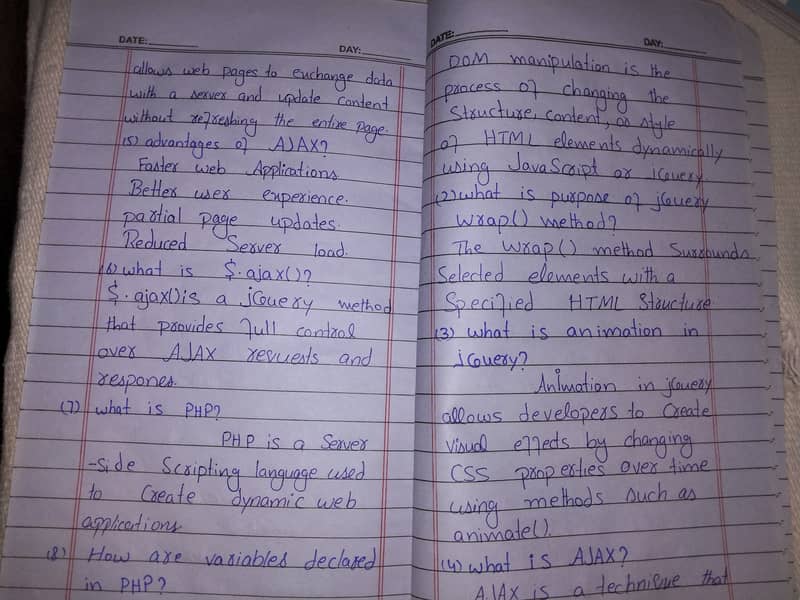 DATE:
DAY:
allows web pages to exchange data
with a server and update content
without refreshing the entire page.
(5) advantages of AJAX?
Faster web Applications
Better user experience.
partial page updates.
Reduced Server load.
(6) what is $.ajax()?
$.ajax() is a jQuery method
that provides full control
over AJAX requests and
respones.
(7) what is PHP?
PHP is a Server
-side Scripting language used
to Create dynamic web
applications
(8) How are variables declared
in PHP?
DATE:
DAY:
DOM manipulation is the
process of changing the
Structure, content, or style
of HTML elements dynamically
using JavaScript or jQuery.
(2) what is purpose of jQuery
Wrap() method?
The wrap() method Surrounds
Selected elements with a
Specified HTML Structure
(3) what is animation in
jQuery?
Animation in jQuery
allows developers to Create
visual effects by changing
CSS properties over time
using methods such as
animate().
(4) what is AJAX?
AJAX is a technique that